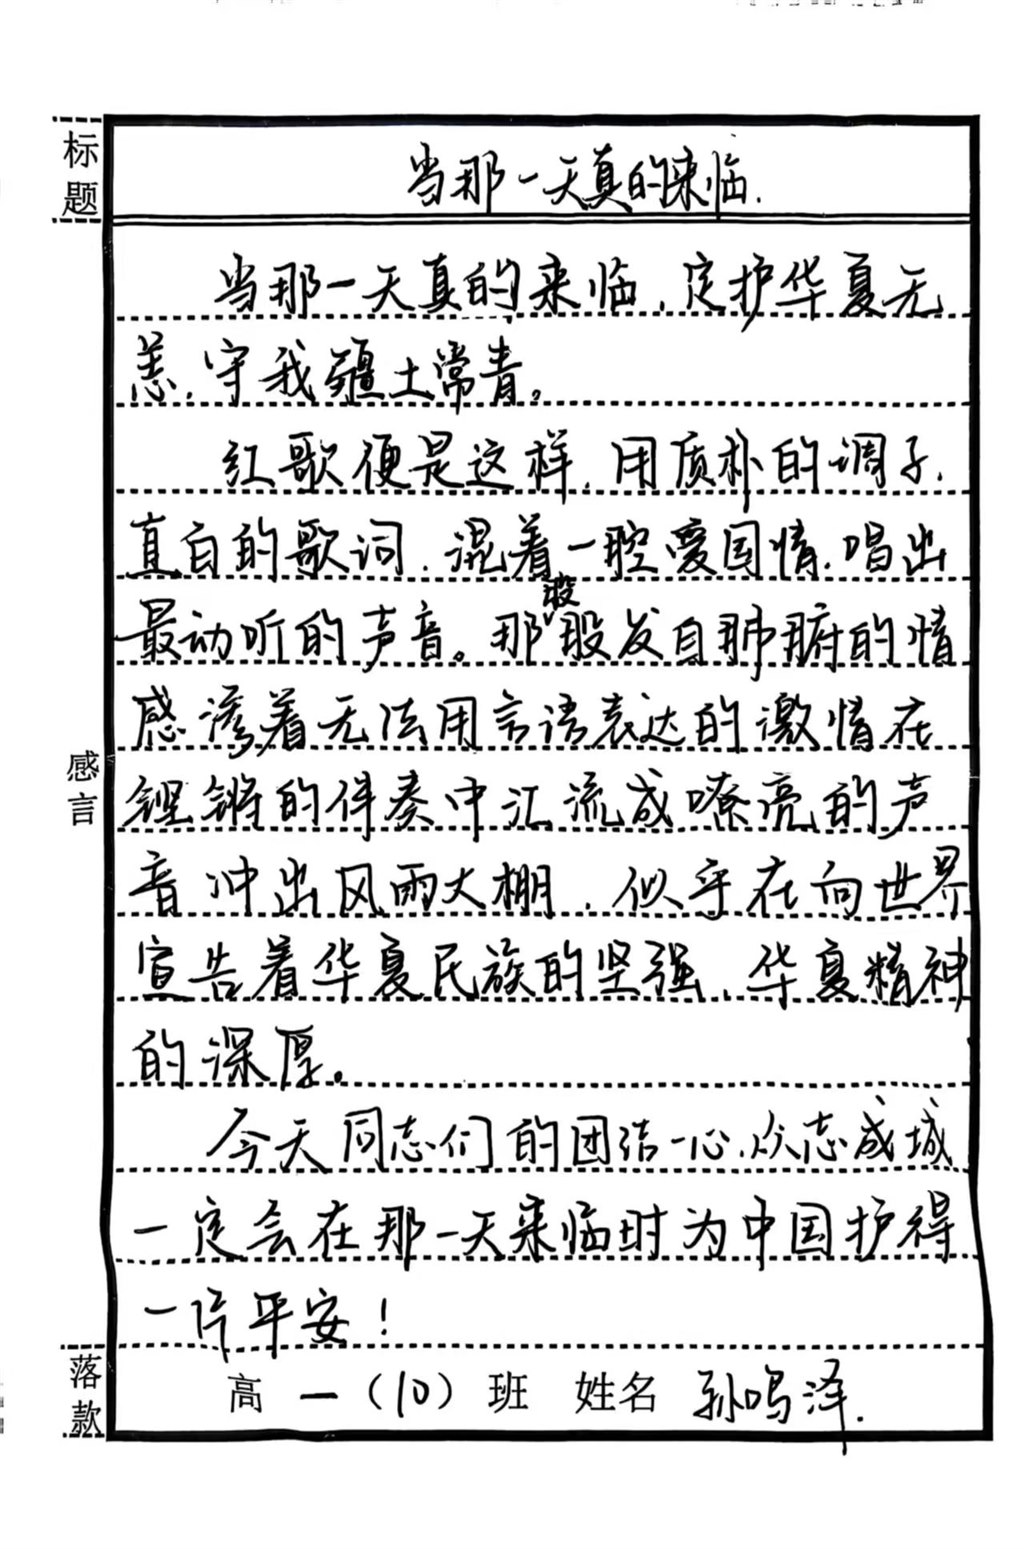 标题
当那一天真的来临.
当那一天真的来临,定护华夏无
恙,守我疆土常青。
红歌便是这样,用质朴的调子,
直白的歌词,混着一腔爱国情,唱出
最动听的声音。那股发自肺腑的情
感渗着无法用言语表达的激情在
铿锵的伴奏中汇流成嘹亮的声
音冲出风雨大棚,似乎在向世界
宣告着华夏民族的坚强,华夏精神
的深厚。
今天同志们的团结一心,众志成城
一定会在那一天来临时为中国护得
一片平安!
感言
落款
高一(10)班 姓名 孙鸣泽.